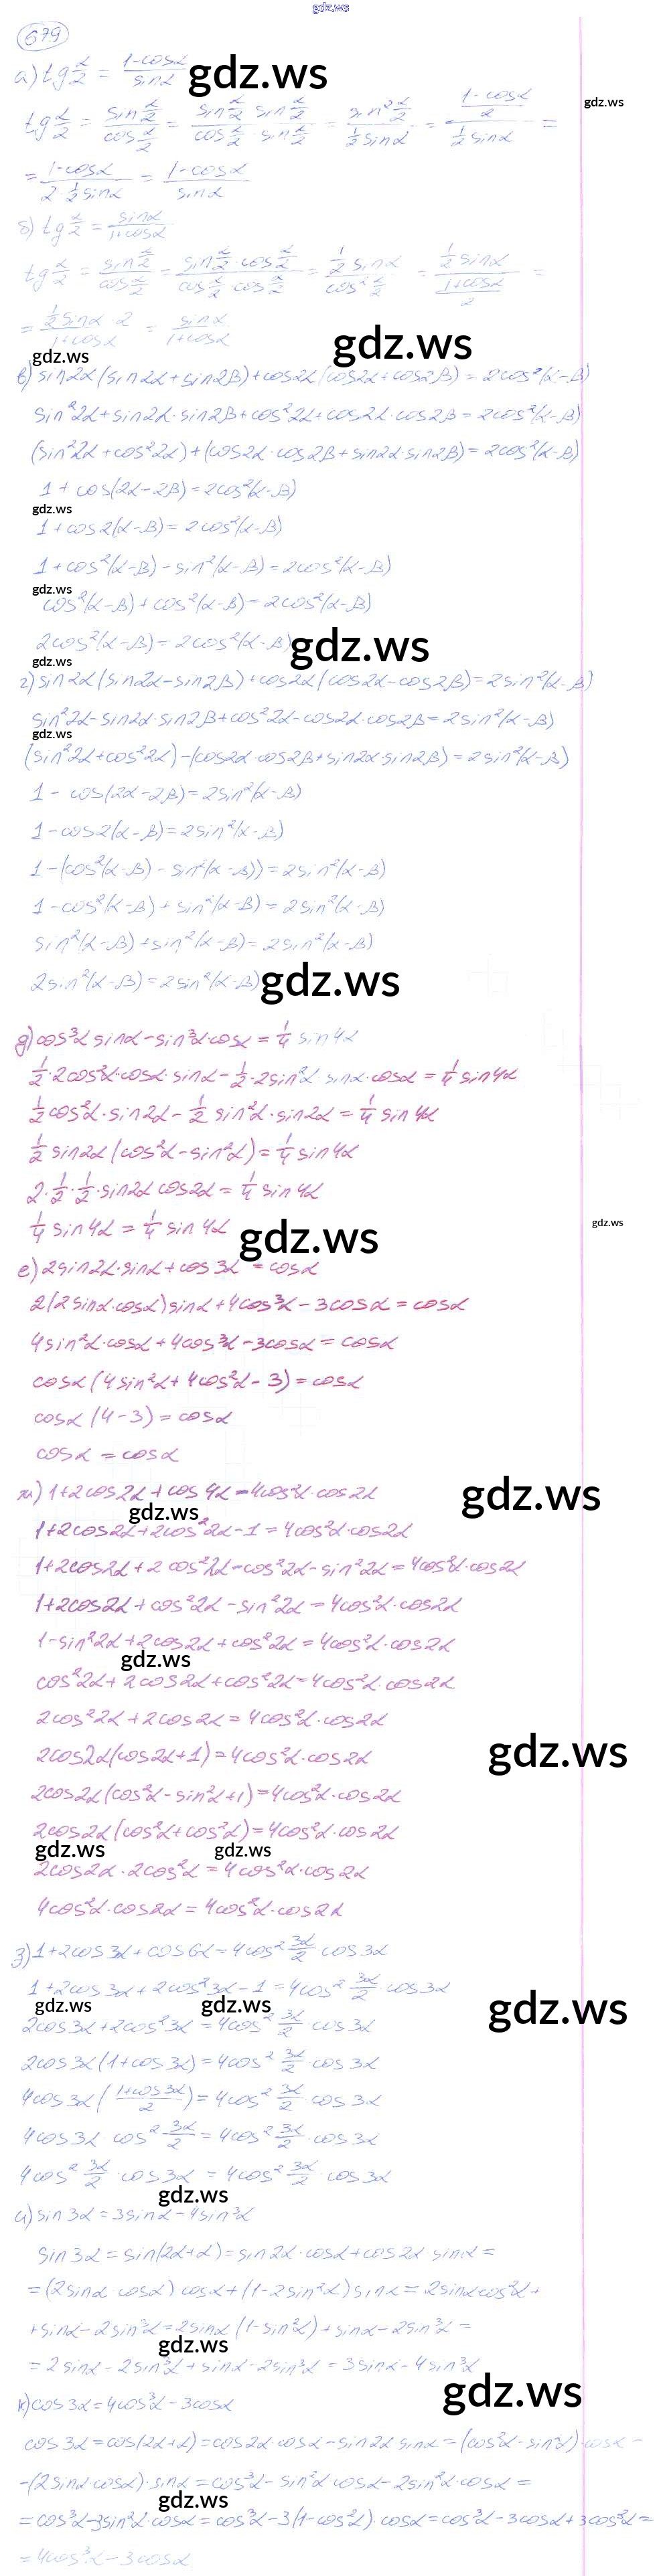 gdz.ws
679
а) tg α/2 = (1-cosα)/sinα gdz.ws
gdz.ws
tg α/2 = (sin α/2)/(cos α/2) = (sin α/2 · sin α/2)/(cos α/2 · sin α/2) = (sin² α/2)/(½ sinα) = ((1-cosα)/2)/(½ sinα) =
= (1-cosα)/(2·½ sinα) = (1-cosα)/sinα
б) tg α/2 = sinα/(1+cosα)
tg α/2 = (sin α/2)/(cos α/2) = (sin α/2 · cos α/2)/(cos α/2 · cos α/2) = (½ sinα)/(cos² α/2) = (½ sinα)/((1+cosα)/2) =
= (½ sinα · 2)/(1+cosα) = sinα/(1+cosα)
gdz.ws gdz.ws
в) sin2α(sin2α+sin2β)+cos2α(cos2α+cos2β)=2cos²(α-β)
sin²2α+sin2α·sin2β+cos²2α+cos2α·cos2β=2cos²(α-β)
(sin²2α+cos²2α)+(cos2α·cos2β+sin2α·sin2β)=2cos²(α-β)
1+cos(2α-2β)=2cos²(α-β)
gdz.ws
1+cos2(α-β)=2cos²(α-β)
1+cos²(α-β)-sin²(α-β)=2cos²(α-β)
gdz.ws
cos²(α-β)+cos²(α-β)=2cos²(α-β)
2cos²(α-β)=2cos²(α-β) gdz.ws
gdz.ws
г) sin2α(sin2α-sin2β)+cos2α(cos2α-cos2β)=2sin²(α-β)
sin²2α-sin2α·sin2β+cos²2α-cos2α·cos2β=2sin²(α-β)
gdz.ws
(sin²2α+cos²2α)-(cos2α·cos2β+sin2α·sin2β)=2sin²(α-β)
1-cos(2α-2β)=2sin²(α-β)
1-cos2(α-β)=2sin²(α-β)
1-(cos²(α-β)-sin²(α-β))=2sin²(α-β)
1-cos²(α-β)+sin²(α-β)=2sin²(α-β)
sin²(α-β)+sin²(α-β)=2sin²(α-β)
2sin²(α-β)=2sin²(α-β) gdz.ws
д) cos³α sinα-sin³α·cosα=¼ sin4α
½·2cos²α·cosα·sinα-½·2sin²α·sinα·cosα=¼ sin4α
½cos²α·sin2α-½ sin²α·sin2α=¼ sin4α
½ sin2α(cos²α-sin²α)=¼ sin4α
2·½·½·sin2α cos2α=¼ sin4α
¼ sin4α=¼ sin4α gdz.ws
gdz.ws
е) 2sin2α·sinα+cos3α=cosα
2(2sinα·cosα)sinα+4cos³α-3cosα=cosα
4sin²α·cosα+4cos³α-3cosα=cosα
cosα(4sin²α+4cos²α-3)=cosα
cosα(4-3)=cosα
cosα=cosα
ж) 1+2cos2α+cos4α=4cos²α·cos2α gdz.ws
gdz.ws
1+2cos2α+2cos²2α-1=4cos²α·cos2α
1+2cos2α+2cos²2α-cos²2α-sin²2α=4cos²α·cos2α
1+2cos2α+cos²2α-sin²2α=4cos²α·cos2α
1-sin²2α+2cos2α+cos²2α=4cos²α·cos2α
gdz.ws
cos²2α+2cos2α+cos²2α=4cos²α·cos2α
2cos²2α+2cos2α=4cos²α·cos2α
2cos2α(cos2α+1)=4cos²α·cos2α gdz.ws
2cos2α(cos²α-sin²α+1)=4cos²α·cos2α
2cos2α(cos²α+cos²α)=4cos²α·cos2α
gdz.ws gdz.ws
2cos2α·2cos²α=4cos²α·cos2α
4cos²α·cos2α=4cos²α·cos2α
з) 1+2cos3α+cos6α=4cos² 3α/2 cos3α
1+2cos3α+2cos²3α-1=4cos² 3α/2 · cos3α
gdz.ws gdz.ws gdz.ws
2cos3α+2cos²3α=4cos² 3α/2 · cos3α
2cos3α(1+cos3α)=4cos² 3α/2 · cos3α
4cos3α((1+cos3α)/2)=4cos² 3α/2 · cos3α
4cos3α cos² 3α/2=4cos² 3α/2 · cos3α
4cos² 3α/2 · cos3α=4cos² 3α/2 · cos3α
gdz.ws
и) sin3α=3sinα-4sin³α
sin3α=sin(2α+α)=sin2α·cosα+cos2α sinα=
=(2sinα cosα)cosα+(1-2sin²α)sinα=2sinαcos²α+
+sinα-2sin³α=2sinα(1-sin²α)+sinα-2sin³α=
gdz.ws
=2sinα-2sin³α+sinα-2sin³α=3sinα-4sin³α
gdz.ws
к) cos3α=4cos³α-3cosα
cos3α=cos(2α+α)=cos2α·cosα-sin2α sinα=(cos²α-sin²α)·cosα-
-(2sinα cosα)·sinα=cos³α-sin²α cosα-2sin²α·cosα=
gdz.ws
=cos³α-3sin²α·cosα=cos³α-3(1-cos²α)·cosα=cos³α-3cosα+3cos³α=
=4cos³α-3cosα